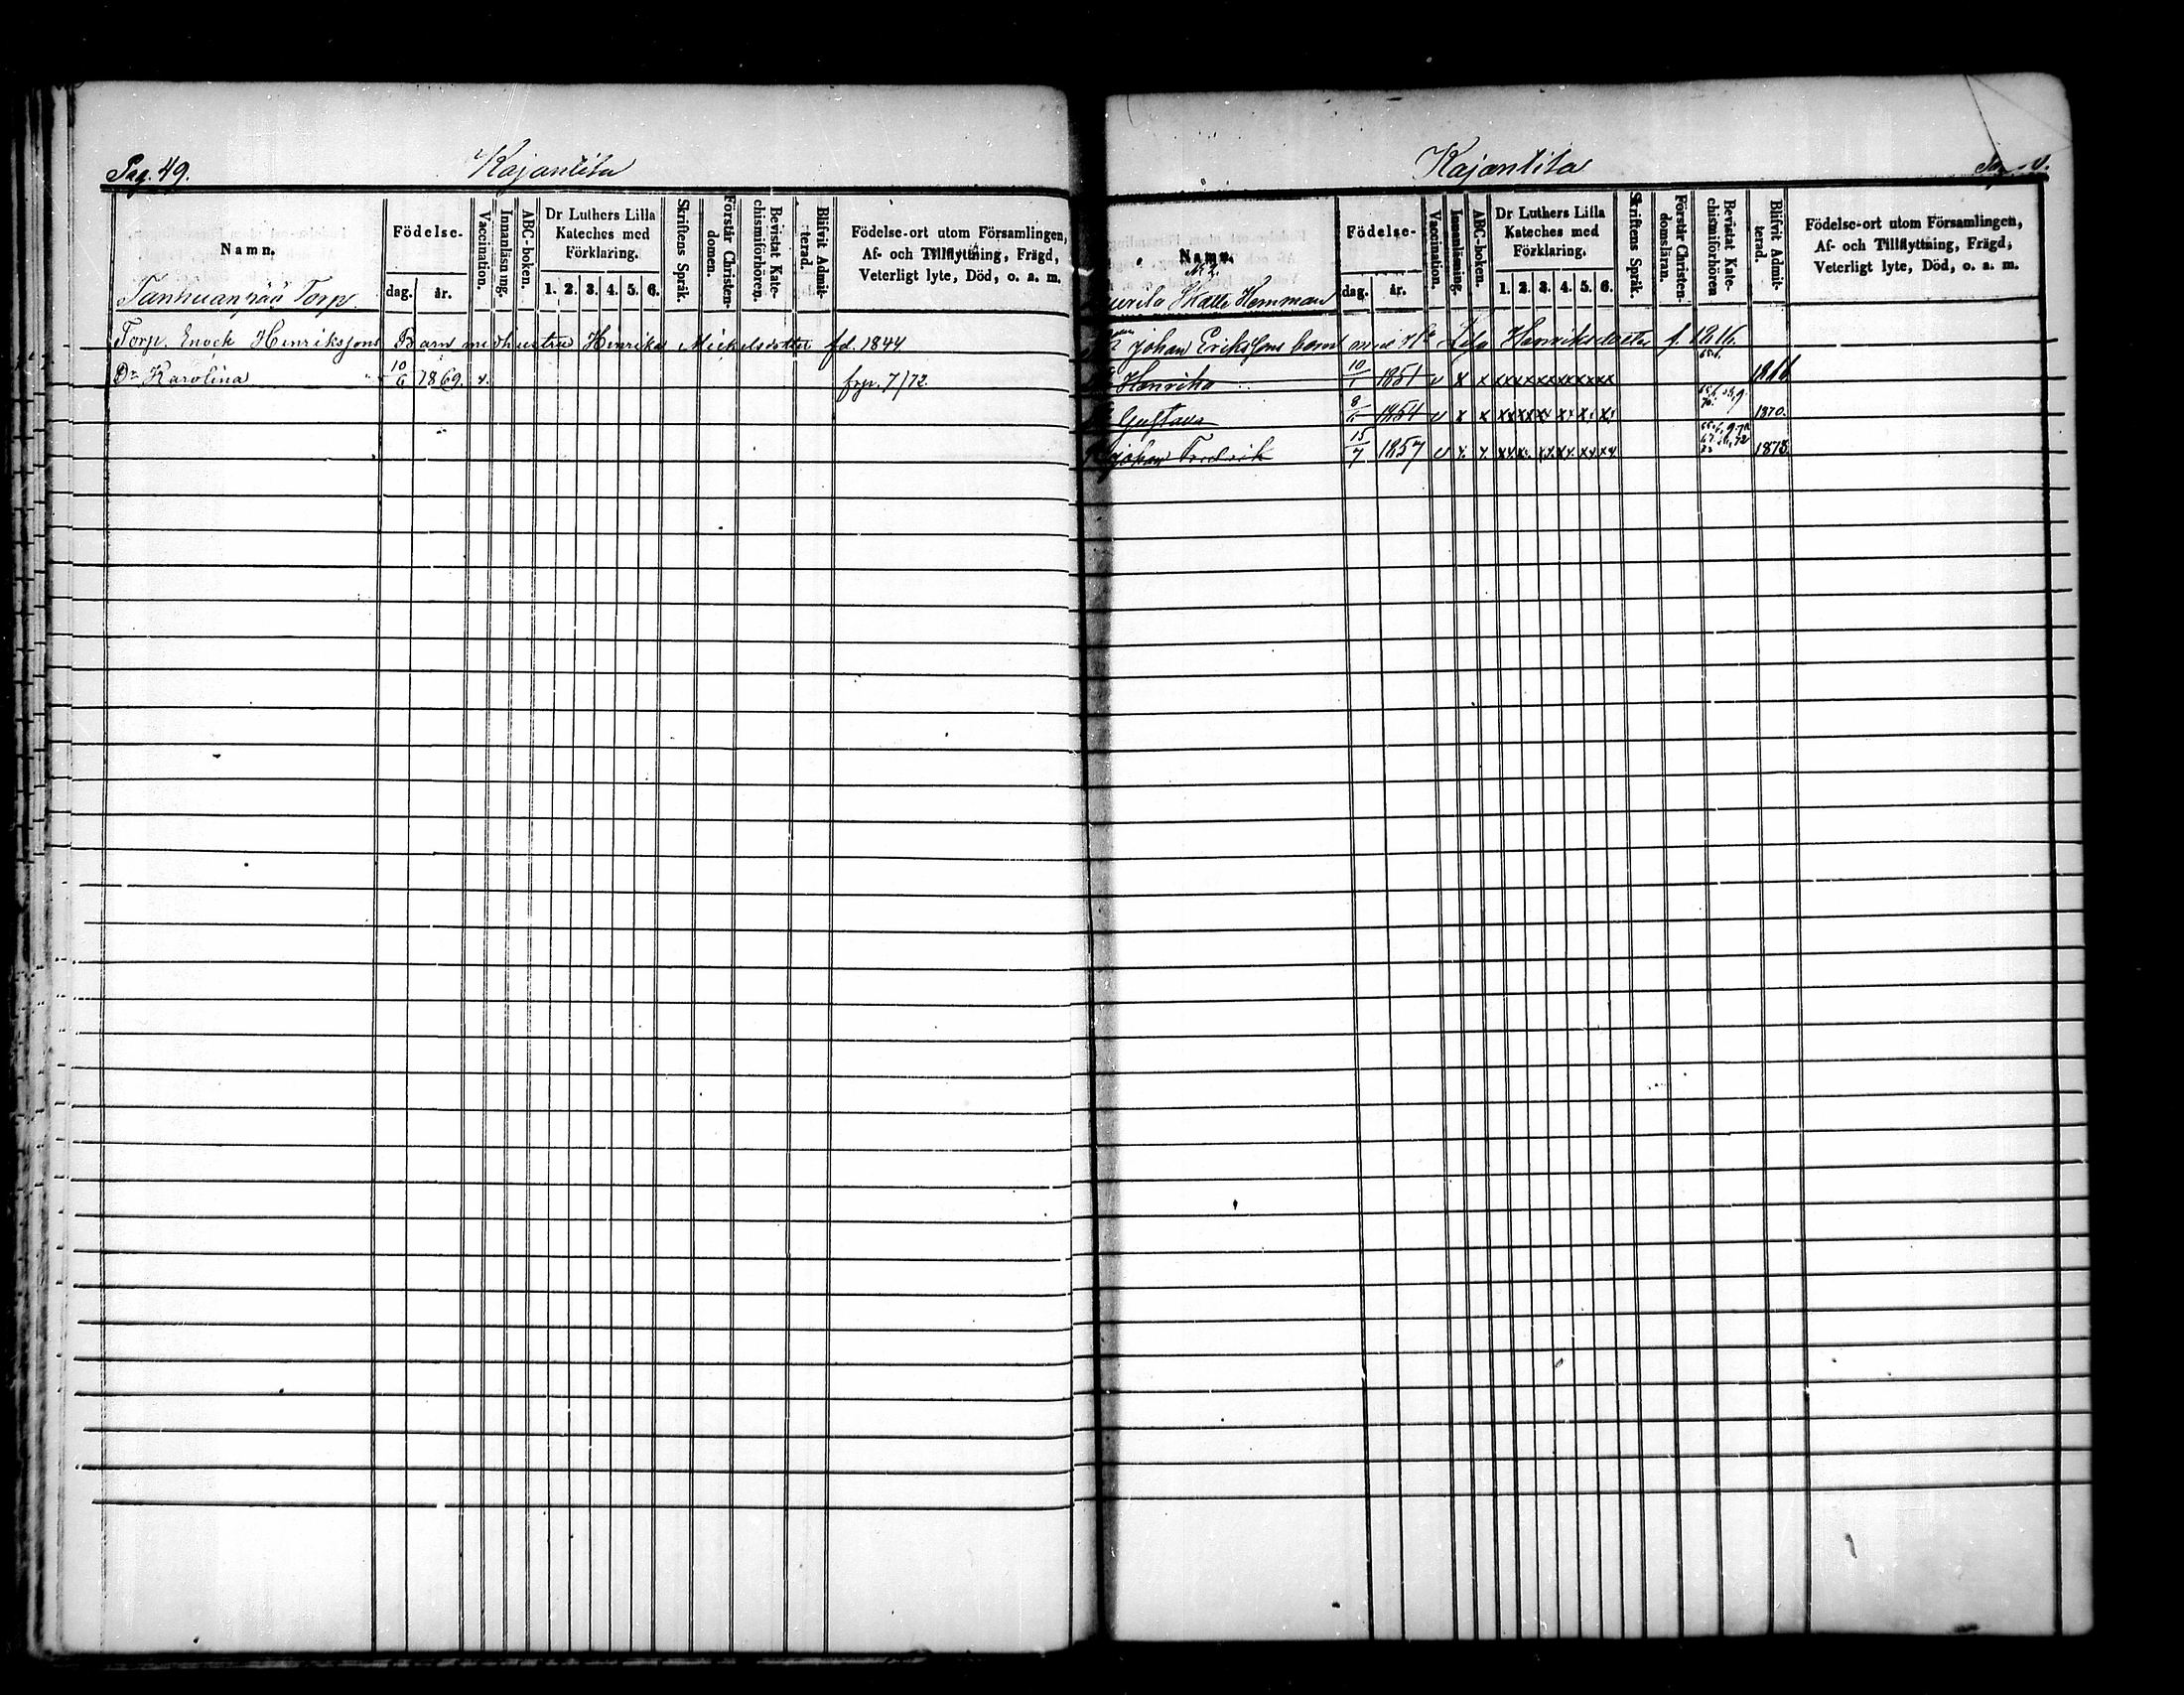 Pag. 49.
Kajantila
Namn.
Födelse-
dag.
år.
Vaccination.
Innanläsning.
ABC-boken.
Dr Luthers Lilla
Kateches med
Förklaring.
1. 2. 3. 4. 5. 6.
Skriftens Språk.
Förstår Christen-
domen.
Bevistat Kate-
chismiförhören.
Blifvit Admit-
terad.
Födelse-ort utom Församlingen,
Af- och Tillflyttning, Frägd,
Veterligt lyte, Död, o. a. m.
Tanhuanpää Torp
Torp. Enock Henriksons Barn med hustru Henrika Mickelsdotter fd. 1844
Dr Karolina 10/6 1869. v. frp. 7/72
Kajantila
Pag.
Namn.
No 2.
Skatte Hemman
Födelse-
dag.
år.
Vaccination.
Innanläsning.
ABC-boken.
Dr Luthers Lilla
Kateches med
Förklaring.
1. 2. 3. 4. 5. 6.
Skriftens Språk.
Förstår Christen-
domsläran.
Bevistat Kate-
chismiförhören
Blifvit Admit-
terad.
Födelse-ort utom Församlingen,
Af- och Tillflyttning, Frägd,
Veterligt lyte, Död, o. a. m.
Johan Erikssons barn med Henriksdotter f. 1816.
Henrika 10/1 1851 v x x xx xx xx xx xx xx
Gustava 1854 v x x xx xx xx xx xx xx 1870.
Johan Fredrik 15/7 1857 v x x xx xx xx xx xx xx 1873.